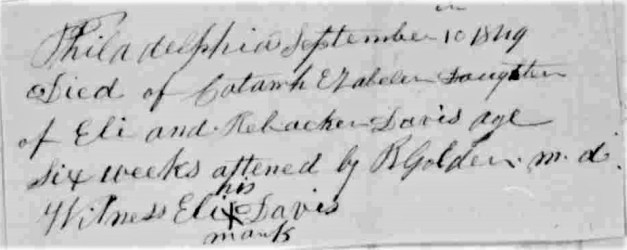 Philadelphia September 10th 1849
Died of Catarrh Ezabeler Daughter
of Eli and Rebacker Davis age
Six weeks attened by R Golden. m. d.
his
Witness Eli X Davis
mark